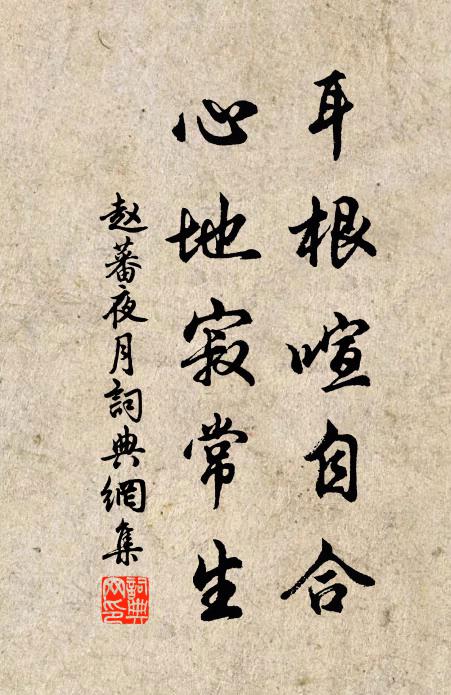 耳根喧自合
心地寂常生
赵蕃夜月詞典網集
詞典网印